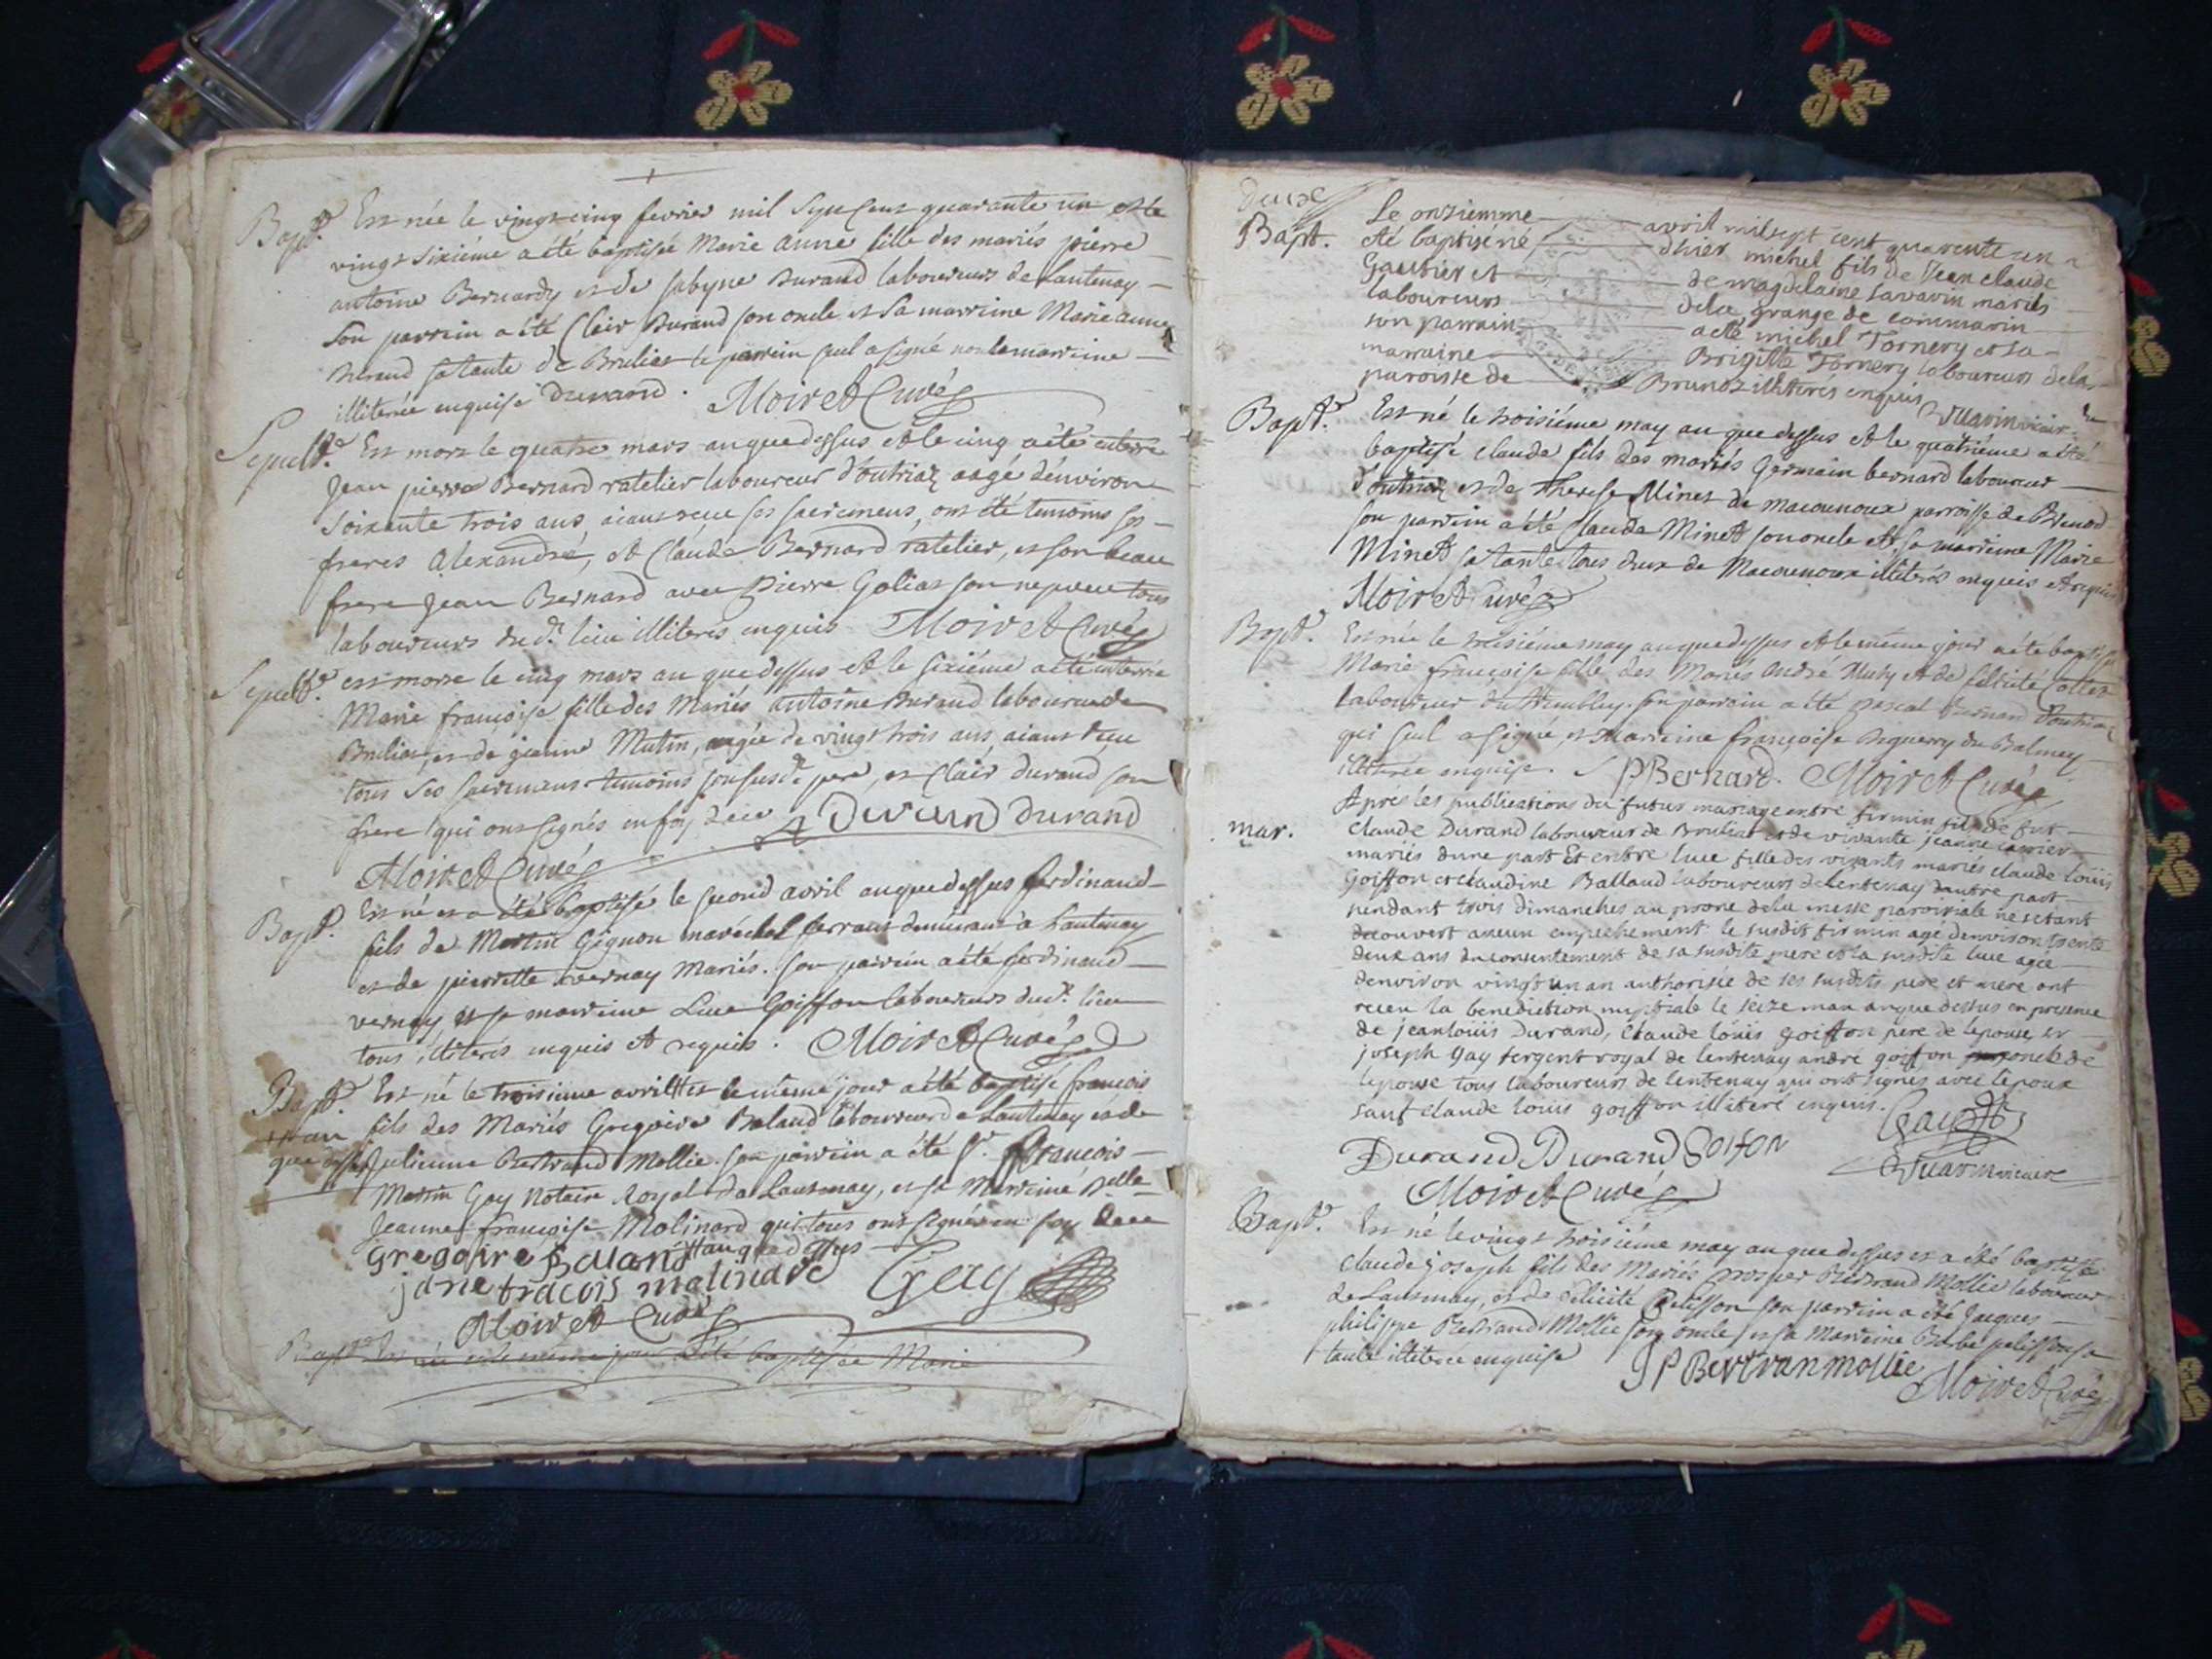 Bapt.
Est née le vingt cinq fevrier mil sept cent quarante un et le
vingt sixiéme a été baptisée Marie anne fille des mariés pierre
antoine Bernardy et de sabyne Durand laboureurs de Lantenay
son parrein a été Clair Durand son oncle et sa marreine Marie anne
Durand sa tante de Brulias le parrein seul a signé non la marreine
illiterée enquise Durand. Moiret Curé
Sepult.
Est mort le quatre mars an que dessus et le cinq a été enterré
Jean pierre Bernard ratelier laboureur d'outriaz aagé d'environ
soixante trois ans, aiant receu ses sacremens, ont été temoins ses
freres alexandre, et Claude Bernard ratelier, et son beau
frere Jean Bernard avec pierre Golias son nepveu tous
laboureurs du d. lieu illiterés enquis Moiret Curé
Sepult.
est morte le cinq mars an que dessus et le sixiéme a été enterrée
Marie françoise fille des Mariés antoine Durand laboureur de
Brulias, et de jeanne Mutin, aagée de vingt trois ans, aiant receu
tous ses sacremens temoins son susd. pere, et Clair durand son
frere qui ont signés en foy de ce A Durand Durand
Moiret Curé
Bapt.
Est né et a été baptisé le second avril an que dessus ferdinand
fils de Martin Gignon maréchal ferrant demeurant à Lantenay
et de pierrette vernay Mariés. son parrein a été ferdinand
vernay, et sa marreine Luce Goiffon laboureurs dud. lieu
tous illiterés enquis et requis. Moiret Curé
Bapt.
Est né le troisieme avril et le même jour a été baptisé françois
fils des Mariés Gregoire Baland laboureur de Lantenay et de
Julienne Bertrand Mollie. son parrein a été S. françois
Martin Gay Notaire Royal de Lantenay, et sa Marreine Delle
Jeanne françoise Molinard qui tous ont signés en foy de ce
Gregoire Balland an que dessus
jane fracois molinard Gay
Moiret Curé
Bapt. Est née et le même jour a été baptisée Marie
deuxe
Bapt.
Le onziemme avril mil sept cent quarente un a
été baptisé né d'hier michel fils de Jean claude
Gauthier et de magdelaine Savarin mariés
laboureurs de la grange de commarin
son parrain a été michel Tornery et sa
marraine Brigitte Tornery laboureurs de la
paroisse de Brunoz illitteres enquis
Bapt.
Est né le troisiéme may an que dessus et le quatriéme a été
baptisé claude fils des mariés Germain bernard laboureur
d'outriaz et de Therese Minet de macounoux parroisse de Brenod
son parrein a été Claude Minet son oncle et sa marreine Marie
Minet sa tante tous deux de Macounoux illiterés enquis et requis
Moiret Curé
Bapt.
Est née le treisiéme may an que dessus et le même jour a été baptisée
Marie françoise fille des Mariés André Muty et de felicité Collet
laboureur du son parrein a été pascal Bernard d'outriaz
qui seul a signé, et Marreine françoise du Balmey
illiterée enquise. P Bernard. Moiret Curé
mar.
Aprés les publications du futur mariage entre firmin fils de fut
claude Durand laboureur de Brulias et de vivante jeanne
mariés dune part Et entre luce fille des vivants mariés claude louis
Goiffon et claudine Balland laboureurs de Lentenay dautre part
pendant trois dimanches au prone de la messe paroissiale ne setant
decouvert aucun empechement le susdit firmin agé denviron trente
deux ans du consentement de sa susdite mere et la susdite luce agée
denviron vingt un an authorisée de ses susdits pere et mere ont
receu la benediction nuptiale le seize may an que dessus en presence
de jean louis Durand, Claude louis goiffon pere de lepouse, et
joseph Gay sergent royal de lentenay andré goiffon oncle de
lepouse tous laboureurs de lentenay qui ont signes avec lepoux
sauf claude louis goiffon illiteré enquis. Gay
Durand Durand Goifon
Moiret Curé
Bapt.
Est né le vingt troisiéme may an que dessus et a été baptisé
claude joseph fils des Mariés prosper Bertrand Mollie laboureur
de Lantenay, et de felicité Pelisson son parrein a été Jacques
philippe Bertrand Mollie son oncle, et sa Marreine Barbe pelisson sa
tante illiterée enquise J P Bertran mollie Moiret Curé